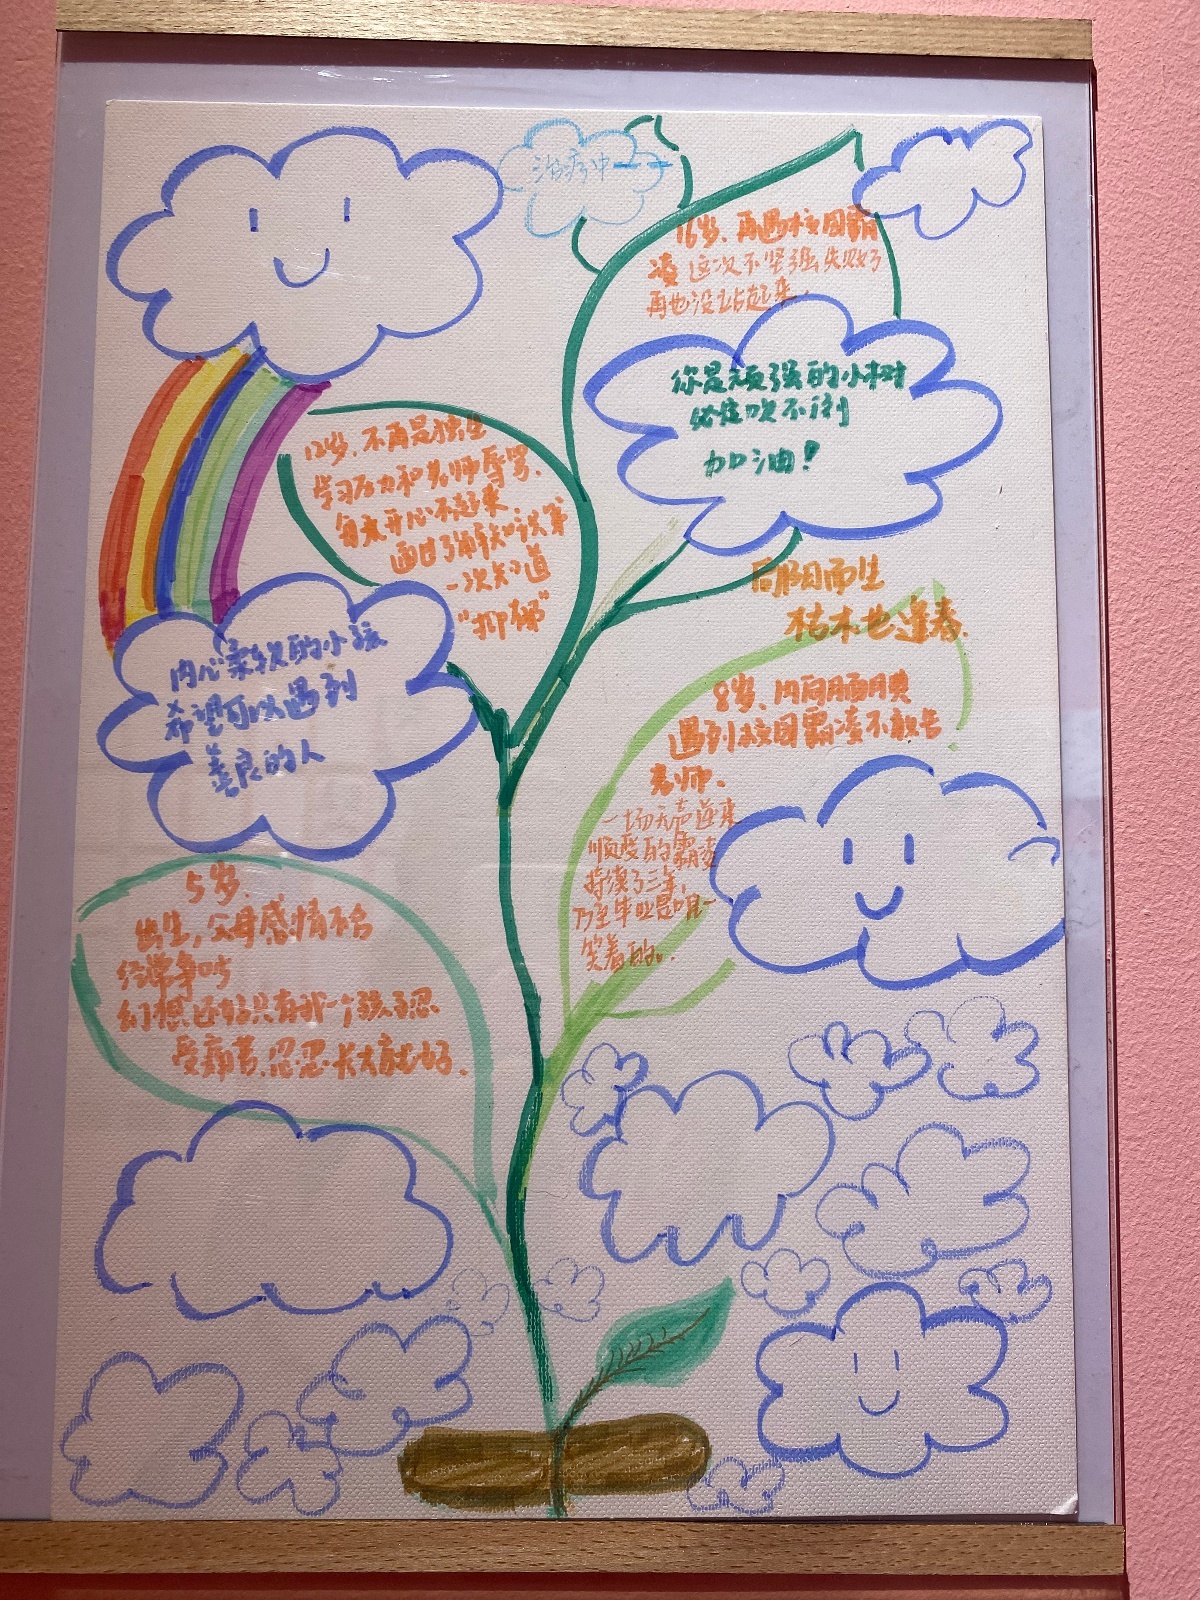 治病中
16岁、再遇校园霸
凌 这次不坚强 失败了
再也没站起来.
你是顽强的小树
必定吹不倒
加油！
12岁、不再是独生
学习压力和老师辱骂、
每天开心不起来.
通过了解知识第
一次知道
"抑郁"
向阳而生
枯木也逢春.
内心柔软的小孩
希望可以遇到
善良的人
8岁、内向腼腆
遇到校园霸凌不敢告
老师、
一场无声逆来
顺受的霸凌
持续了三年,
乃至毕业是唯一
笑着的.
5岁.
出生,父母感情不合
经常争吵
幻想还好只有我一个孩子忍
受痛苦.忍忍长大就好.